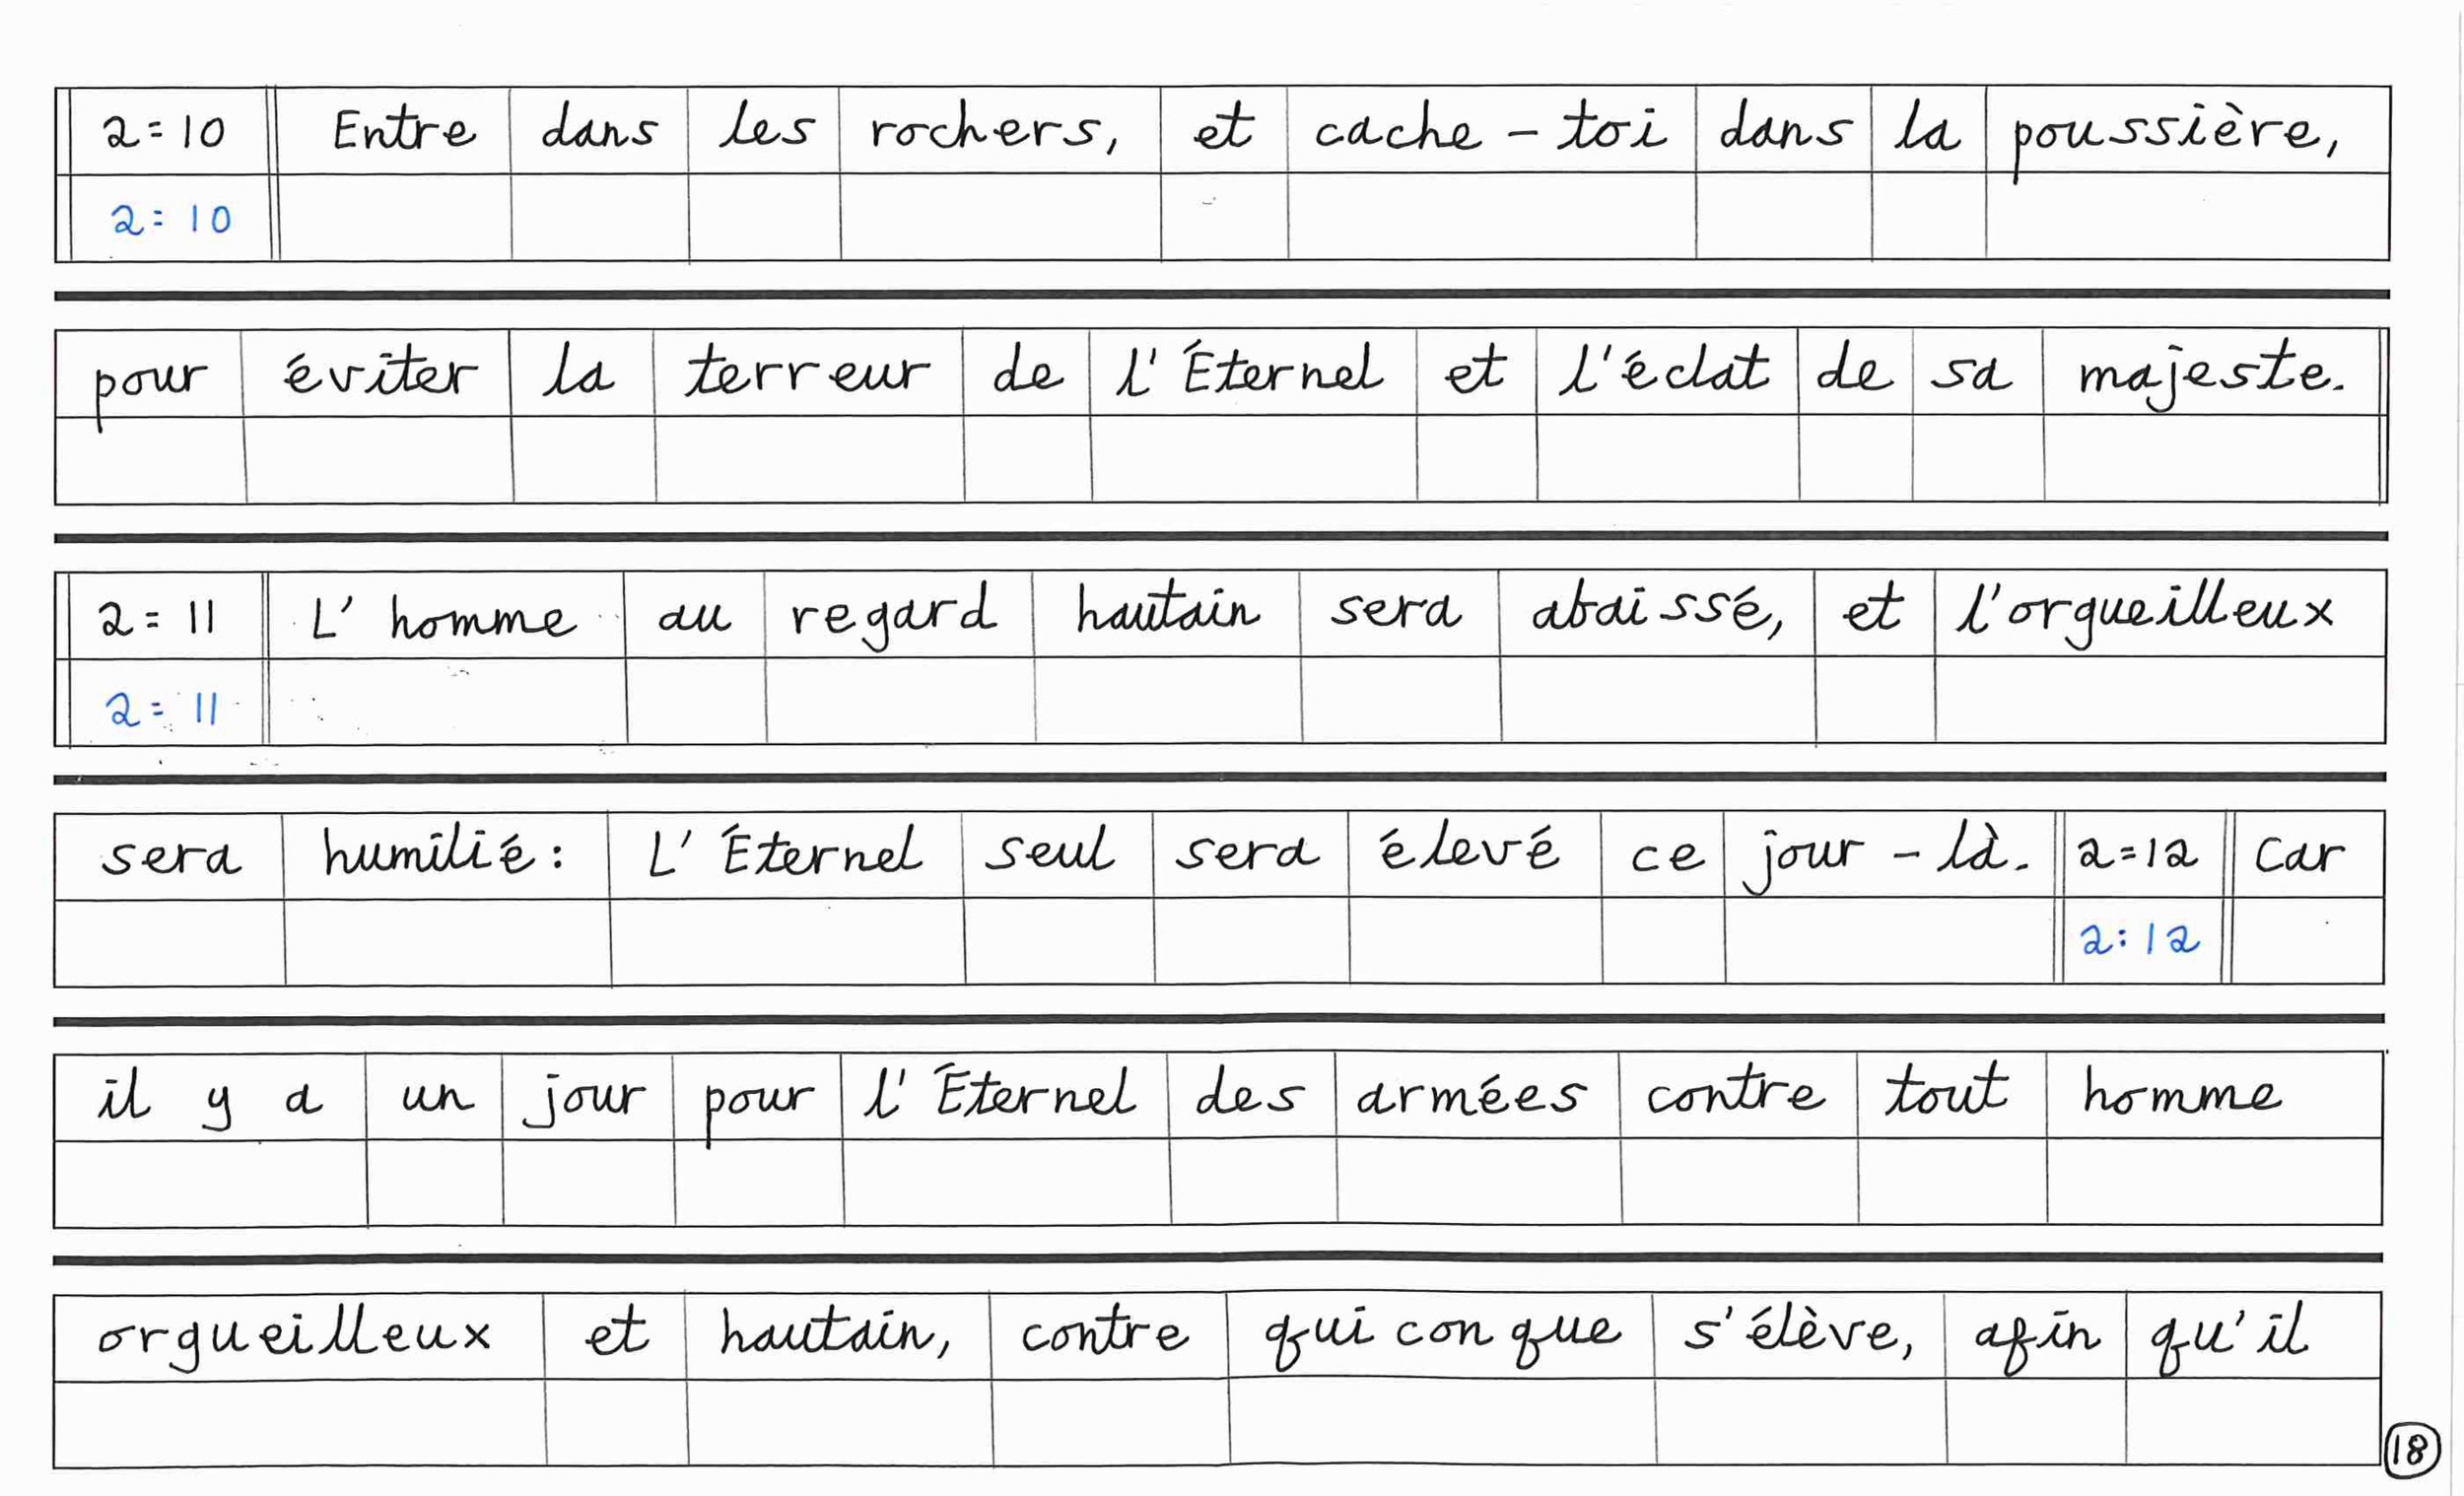 2=10 Entre dans les rochers, et cache-toi dans la poussière,
2=10
pour éviter la terreur de l'Éternel et l'éclat de sa majeste.
2=11 L'homme au regard hautain sera abaissé, et l'orgueilleux
2=11
sera humilié: L'Éternel seul sera élevé ce jour-là. 2=12 Car
2:12
il y a un jour pour l'Éternel des armées contre tout homme
orgueilleux et hautain, contre quiconque s'élève, afin qu'il
18